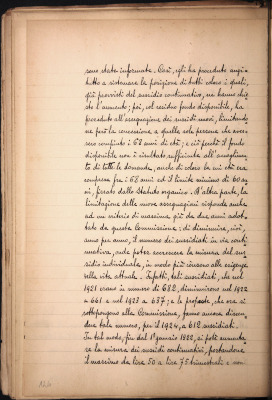 sono state informate. Così, egli ha proceduto anzi-
tutto a sistemare la posizione di tutti coloro i quali,
già provvisti del sussidio continuativo, ne hanno chie-
sto l'aumento; poi, col residuo fondo disponibile, ha
proceduto all'assegnazione dei sussidi nuovi, limitando-
ne però la concessione a quelle sole persone che aves-
sero compiuto i 68 anni di età; e ciò perchè il fondo
disponibile non è risultato sufficiente all'accoglimen-
to di tutte le domande, anche di coloro la cui età era
compresa fra i 68 anni ed il limite minimo di 60 an-
ni, fissato dallo Statuto organico. D'altra parte, la
limitazione delle nuove assegnazioni risponde anche
ad un criterio di massima, già da due anni adot-
tato da questa Commissione: di diminuire, cioè,
anno per anno, il numero dei sussidiati in via conti-
nuativa, onde poter accrescere la misura del sus-
sidio individuale, in modo più consono alle esigenze
della vita attuale. Infatti, tali sussidiati, che nel
1921 erano in numero di 682, diminuirono nel 1922
a 661 e nel 1923 a 637; e le proposte, che ora si
sottopongono alla Commissione, fanno ancora discen-
dere tale numero, per il 1924, a 612 sussidiati.
In tal modo, fin dal 1° gennaio 1922, si potè aumenta-
re la misura dei sussidi continuativi, portandone
il massimo da lire 50 a lire 75 trimestrali e